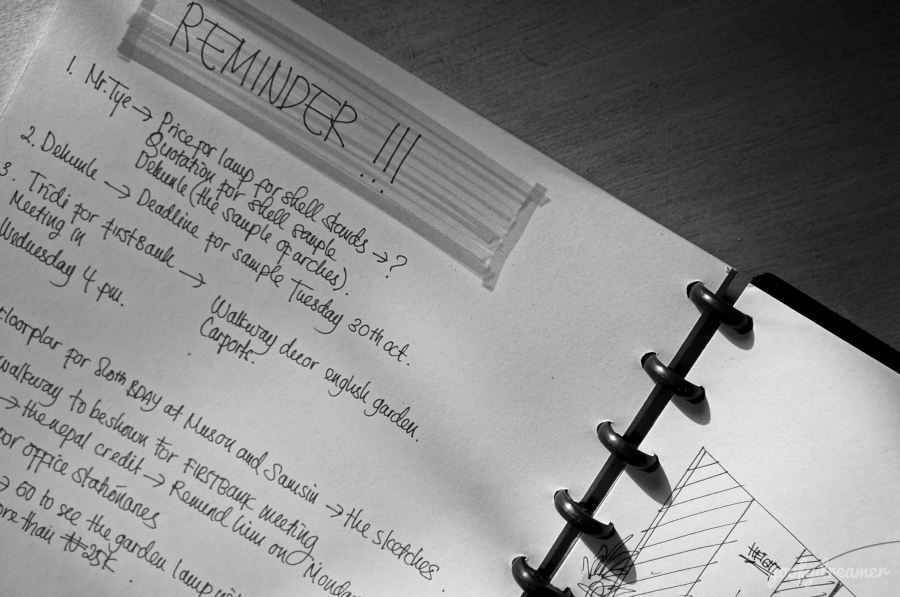 REMINDER !!!
...
1. Mr. Tye → Price for lamp for shell stands → ?
Quotation for shell sample
Dekunle (the sample of arches).
2. Dekunle → Deadline for sample Tuesday 30th oct.
3. Tridi for firstBank → Walkway decor english garden.
Meeting in Carports.
Wednesday 4 pm.
floorplan for 80th BDAY at Muson and Samsin → the sketches
walkway to be shown for FIRSTBANK meeting
→ the nepal credit → Remind him on Monday
for office stationaries
→ Go to see the garden lamp
more than ₦25K.
HEIGHT
dreamer